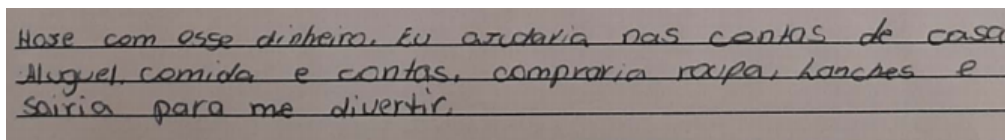 Hose com esse dinheiro. Eu arudaria nas contas de casa
Aluguel, comida e contas, compraria roupa, Lanches e
sairia para me divertir.